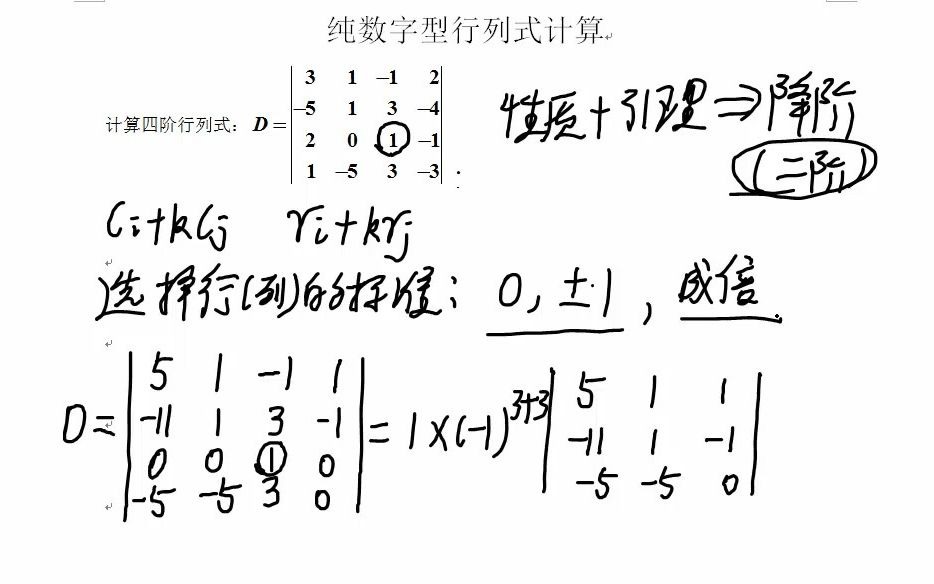 纯数字型行列式计算
3 1 -1 2
-5 1 3 -4
计算四阶行列式: D = 2 0 1 -1
1 -5 3 -3 .
性质+引理⇒降阶
(二阶)
Ci+kCj ri+krj
选择行(列)的标准: 0, ±1, 成倍.
5 1 -1 1
-11 1 3 -1
0 0 1 0
-5 -5 3 0
D= =1×(-1)^3+3
5 1 1
-11 1 -1
-5 -5 0